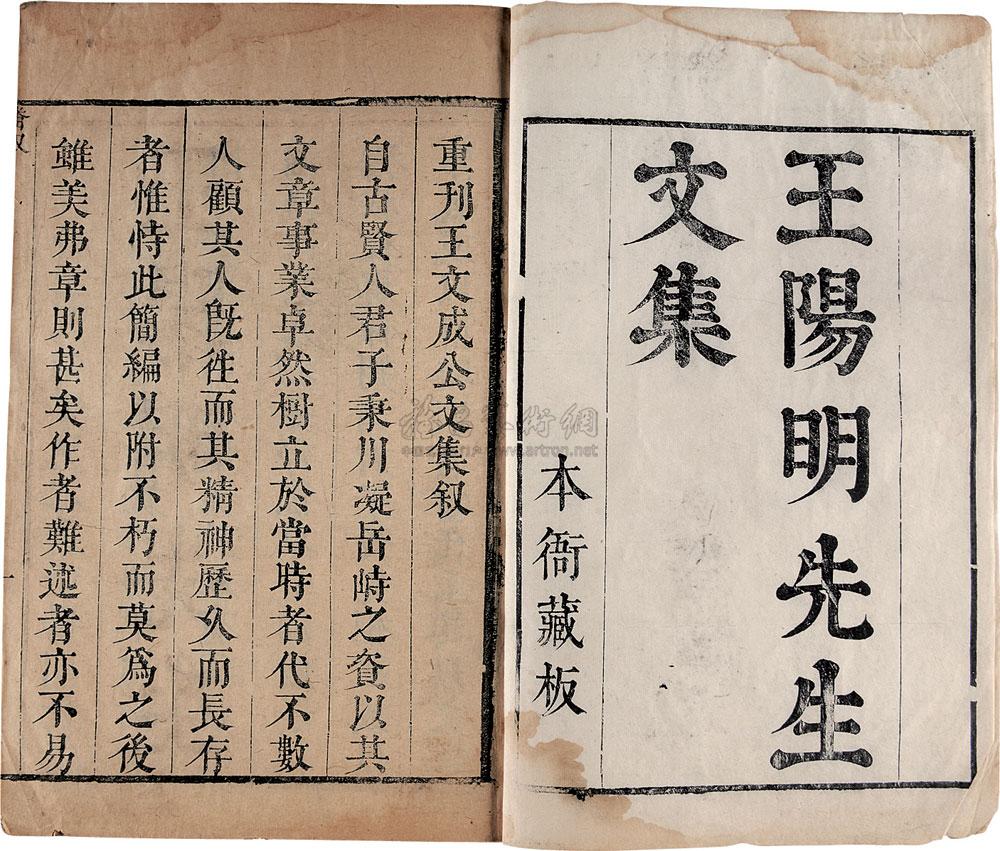 王陽明先生
文集
本衙藏板
重刊王文成公文集叙
自古賢人君子秉川凝岳峙之資以其
文章事業卓然樹立於當時者代不數
人顧其人旣徃而其精神歷久而長存
者惟恃此簡編以附不朽而莫爲之後
雖美弗章則甚矣作者難述者亦不易
www.artron.net